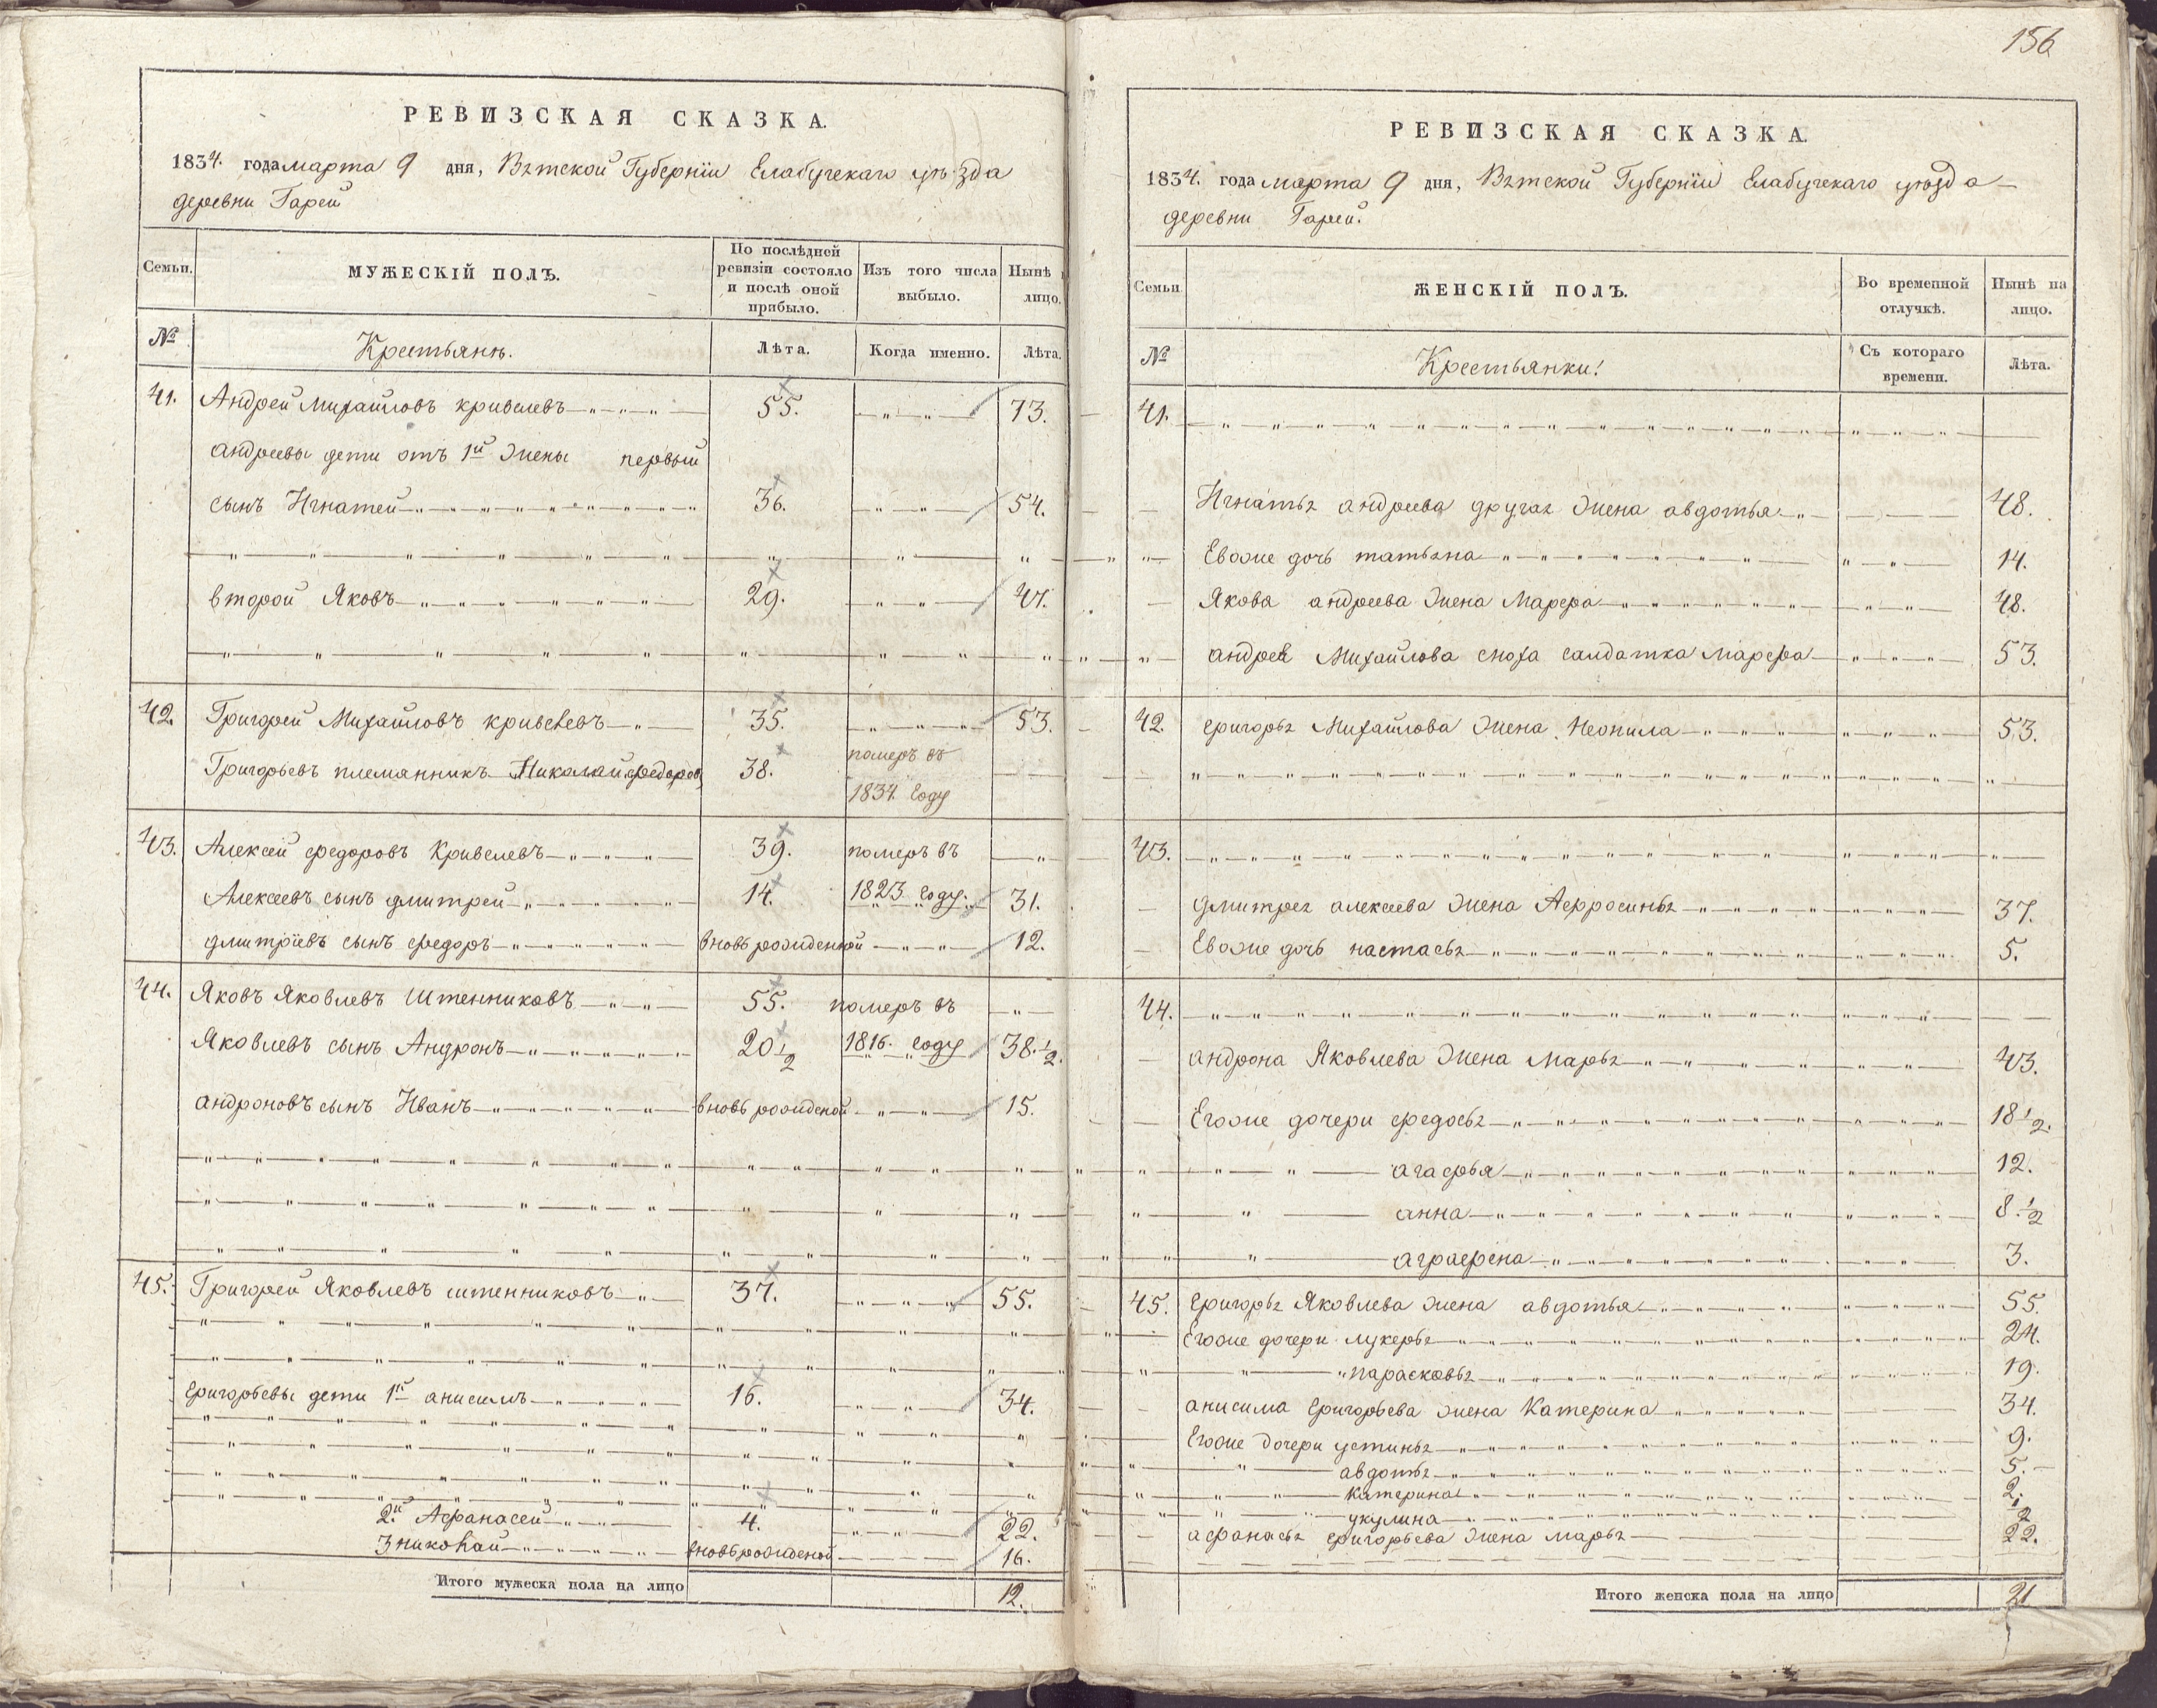 РЕВИЗСКАЯ СКАЗКА.
1834. года марта 9 дня, Вятской Губернiи Елабугскаго уѣзда
деревни Гарей
Семьи.
МУЖЕСКIЙ ПОЛЪ.
По послѣдней ревизiи состояло и послѣ оной прибыло.
Изъ того числа выбыло.
Нынѣ на лицо.
№
Крестьянъ.
Лѣта.
Когда именно.
Лѣта.
41. Андрей Михайловъ кривелевъ 55. 73.
андреевы дети отъ 1й жены первый
сынъ Игнатей 36. 54.
второй Яковъ 29. 47.
42. Григорей Михайловъ кривелевъ 35. 53.
Григорьевъ племянникъ Николай федоров 38. померъ въ
1834 году
43. Алексей федоровъ Кривелевъ 39. померъ въ
Алексеевъ сынъ дмитрей 14. 1823 году. 31.
дмитрiевъ сынъ федоръ вновь рожденной 12.
44. Яковъ Яковлевъ Штенниковъ 55. померъ въ
Яковлевъ сынъ Андронъ 20 1/2 1816. году 38. 1/2.
андроновъ сынъ Иванъ вновь рожденой 15.
45. Григорей Яковлевъ штенниковъ 37. 55.
григорьевы дети 1й анисимъ 16. 34.
2й Афанасей 4. 22.
3 николай вновь рожденой 16.
Итого мужеска пола на лицо 12.
156
РЕВИЗСКАЯ СКАЗКА.
1834. года марта 9 дня, Вятской Губернiи Елабугскаго уѣзда
деревни Гарей.
Семьи
ЖЕНСКIЙ ПОЛЪ.
Во временной отлучкѣ.
Нынѣ на лицо.
№
Крестьянки.
Съ котораго времени.
Лѣта.
41.
Игнатья андреева другая жена авдотья 48.
Евоже дочь татьяна 14.
Якова андреева жена Марфа 48.
андрея Михайлова сноха салдатка Марфа 53.
42. григорья Михайлова жена Неонила 53.
43.
дмитрея алексеева жена Афросинья 37.
Евоже дочь настасья 5.
44.
андрона Яковлева жена Марья 43.
Егоже дочери федосья 18 1/2.
агафья 12.
анна 8. 1/2
аграфена 3.
45. григорья Яковлева жена авдотья 55.
Егоже дочери лукерья 24.
парасковья 19.
анисима григорьева жена Катерина 34.
Егоже дочери устинья 9.
авдотья 5.
катерина 2.
укулина 2
афанасья григорьева жена марья 22.
Итого женска пола на лицо 21